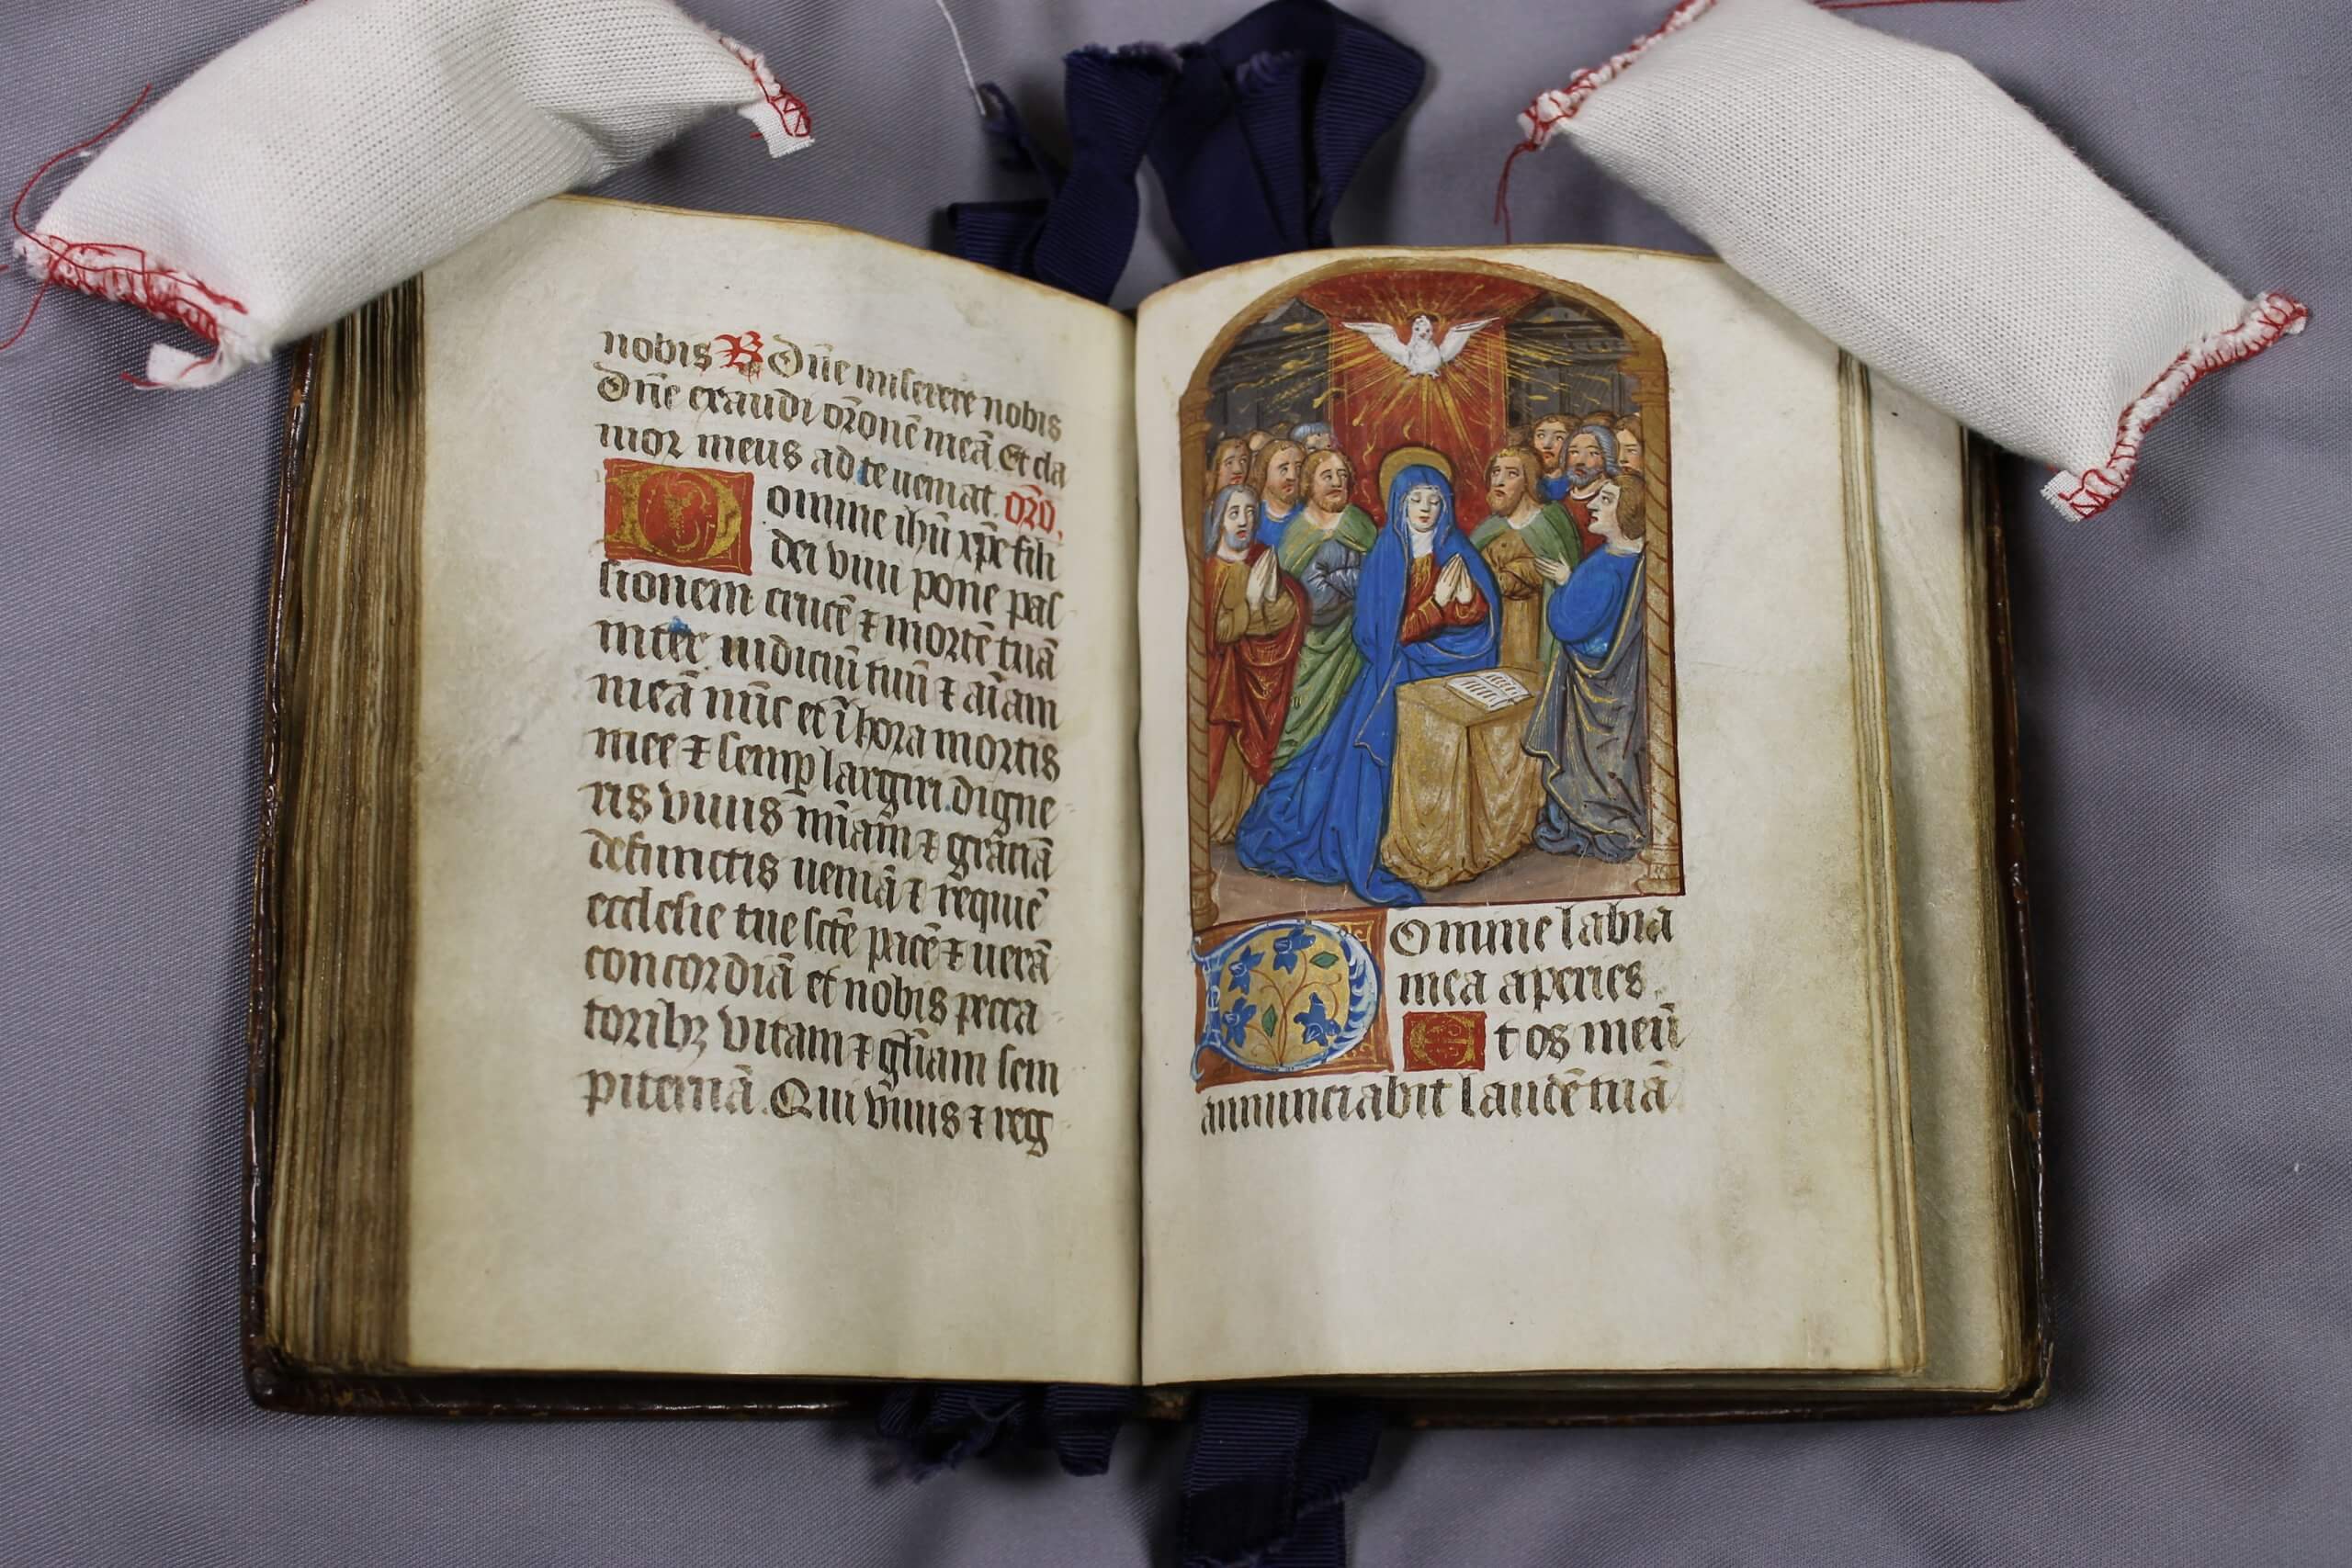 nobis R Dñe miserere nobis
Dñe exaudi orõnẽ meã Et cla
mor meus ad te ueniat. orõ.
Domine ihũ xp̃e fili
dei viui pone pas
sionem crucẽ ⁊ mortẽ tuã
inter iudiciũ tuũ ⁊ aĩam
meã nũc et ĩ hora mortis
mee ⁊ semꝑ largiri digne
ris viuis mĩam ⁊ grãciã
defunctis ueniã ⁊ requiẽ
ecclesie tue sctẽ pacẽ ⁊ uerã
concordiã et nobis pecca
toribꝫ vitam ⁊ gl̃iam sem
piternã. Qui viuis ⁊ reg
Domine labia
mea aperies.
Et os meũ
annunciabit laudẽ tuã